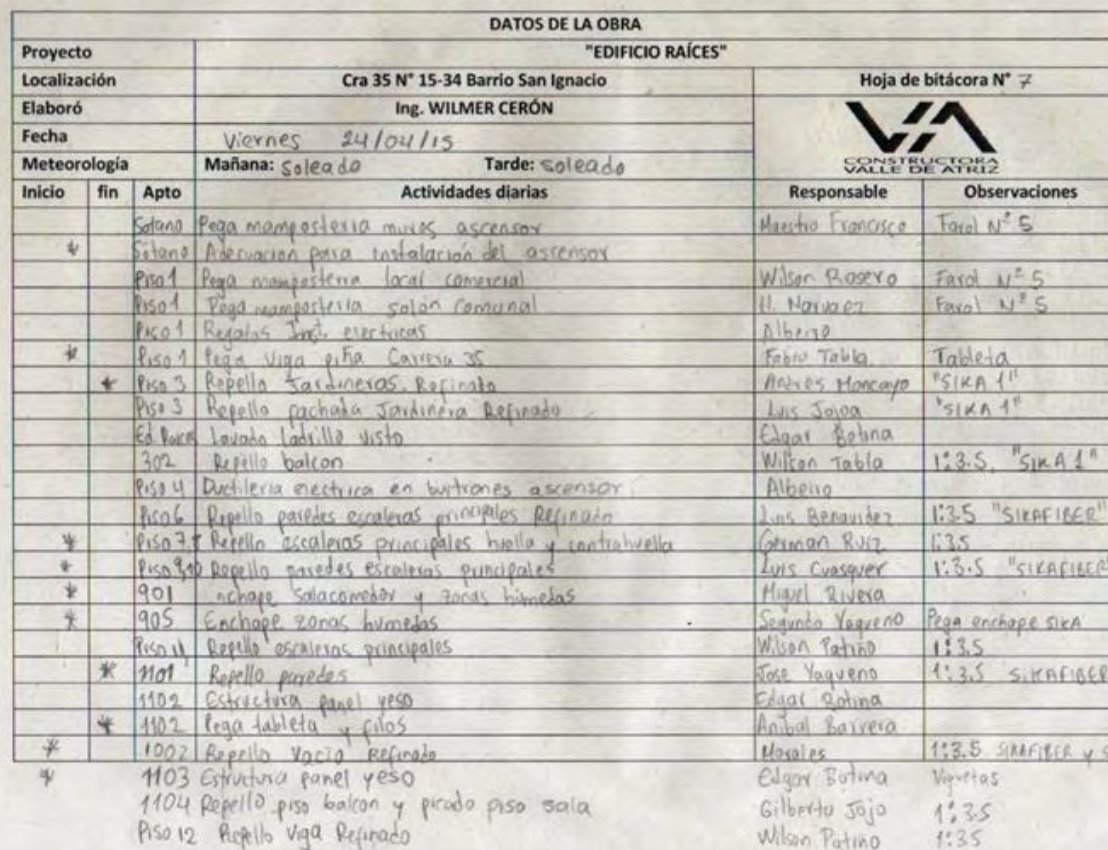 DATOS DE LA OBRA
Proyecto "EDIFICIO RAÍCES"
Localización Cra 35 N° 15-34 Barrio San Ignacio Hoja de bitácora N° 7
Elaboró Ing. WILMER CERÓN
Fecha Viernes 24/04/15
CONSTRUCTORA
VALLE DE ATRIZ
Meteorología Mañana: Soleado Tarde: Soleado
Inicio fin Apto Actividades diarias Responsable Observaciones
Sotano Pega mamposteria muros ascensor Maestro Francisco Farol N° 5
* Sótano Adecuacion para instalación del ascensor
Piso 1 Pega mamposteria local comercial Wilson Rosero Farol N° 5
Piso 1 Pega mamposteria salón comunal H. Narvaez Farol N° 5
Piso 1 Regatas Inst. electricas Albeiro
* Piso 1 Pega viga Carrera 35 Fabio Tabla Tableta
* Piso 3 Repello Jardineras. Refinado Andres Moncayo "SIKA 1"
Piso 3 Repello fachada Jardinera Refinado Luis Jojoa "SIKA 1"
Ed. Raices Lavado ladrillo visto Edgar Botina
302 Repello balcon Wilson Tabla 1:3.5, "SIKA 1"
Piso 4 Ductileria electrica en buitrones ascensor Albeiro
Piso 6 Repello paredes escaleras principales Refinado Luis Benavidez 1:3.5 "SIKAFIBER"
* Piso 7,8 Repello escaleras principales huella y contrahuella German Ruiz 1:3.5
* Piso 9,10 Repello paredes escaleras principales Luis Cuasquer 1:3.5 "SIKAFIBER"
* 901 nchape salacomedor y zonas húmedas Miguel Rivera
* 905 Enchape zonas humedas Segundo Yaqueno Pega enchape SIKA
Piso 11 Repello escaleras principales Wilson Patiño 1:3.5
* 1101 Repello paredes Jose Yaqueno 1:3.5 SIKAFIBER
1102 Estructura panel yeso Edgar Botina
* 1102 Pega tableta y filos Anibal Barrera
* 1002 Repello Vacio Refinado Morales 1:3.5 SIKAFIBER y S
* 1103 Estructura panel yeso Edgar Botina Viguetas
1104 Repello piso balcon y picado piso sala Gilberto Jojo 1:3.5
Piso 12 Repello Viga Refinado Wilson Patiño 1:3.5